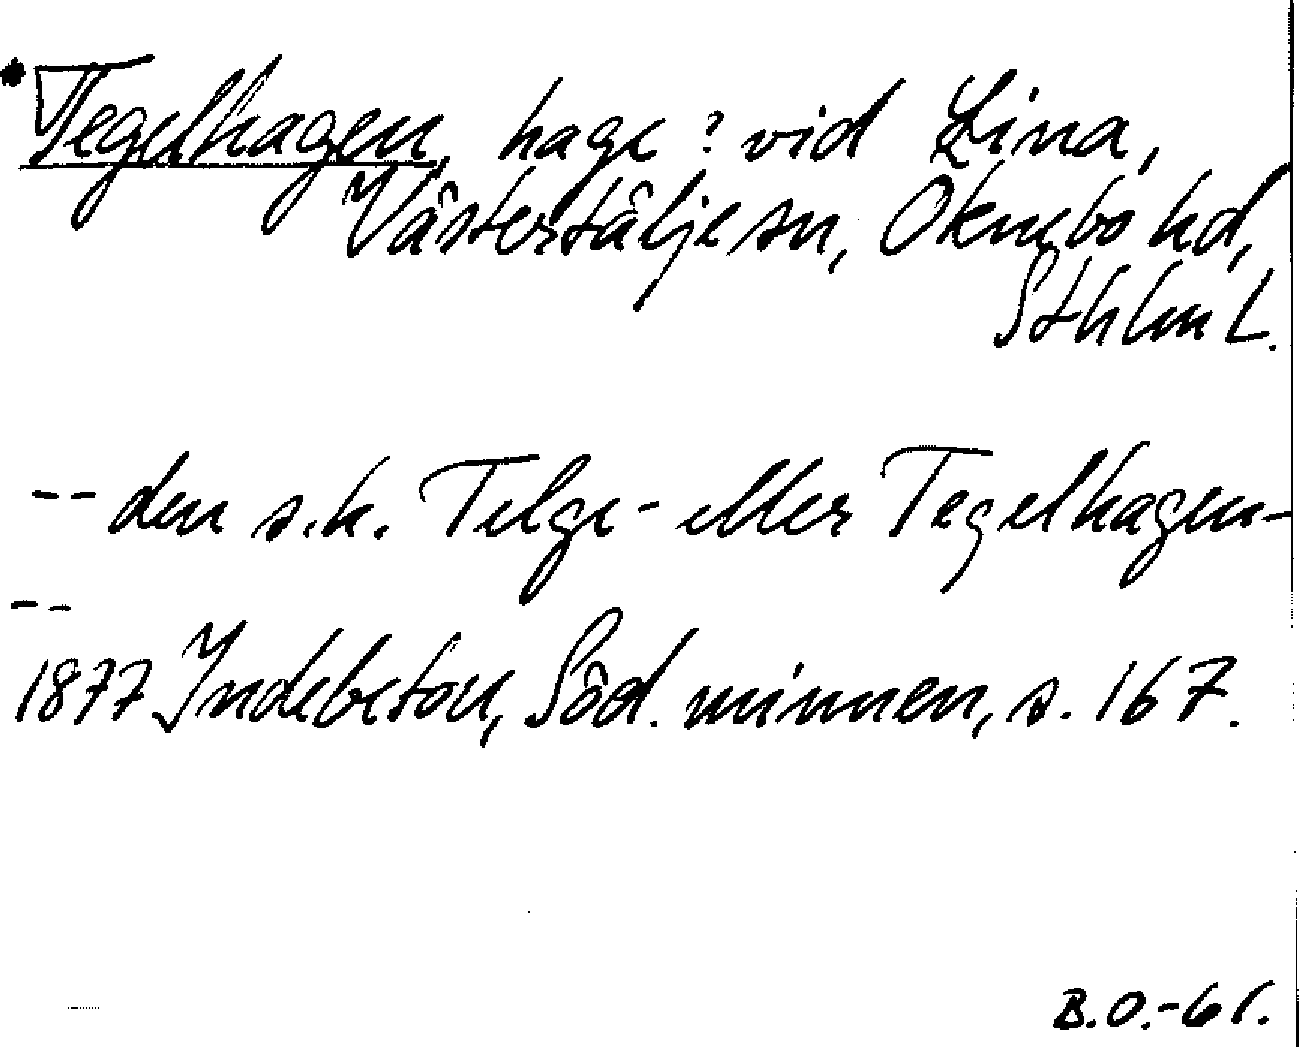 • Tegelhagen, hage? vid Lina,
Västertälje sn, Öknebo hd,
Sthlm L.
-- den s.k. Telge- eller Tegelhagen-
--
1877 Indebetou, Söd. minnen, s. 167.
B.O.-61.